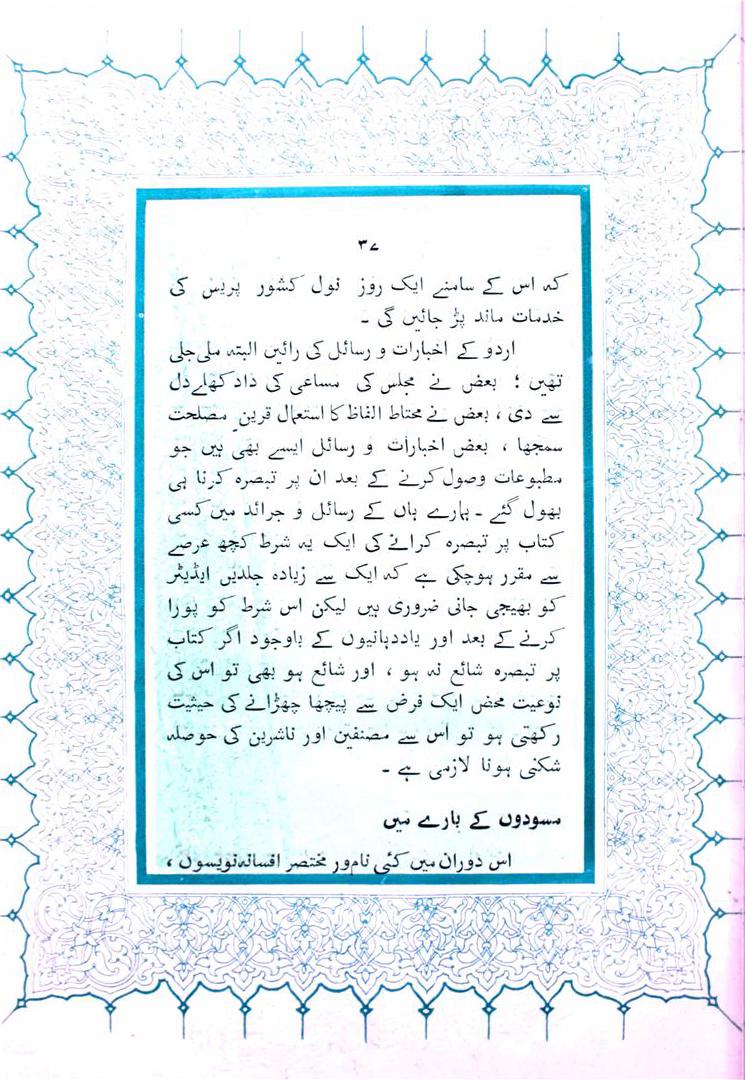 ۳۷
کہ اس کے سامنے ایک روز نول کشور پریس کی
خدمات ماند پڑ جائیں گی ۔
اردو کے اخبارات و رسائل کی رائیں البتہ ملی جلی
تھیں ؛ بعض نے مجلس کی مساعی کی داد کھلے دل
سے دی ، بعض نے محتاط الفاظ کا استعمال قرینِ مصلحت
سمجھا ، بعض اخبارات و رسائل ایسے بھی ہیں جو
مطبوعات وصول کرنے کے بعد ان پر تبصرہ کرنا ہی
بھول گئے ۔ ہمارے ہاں کے رسائل و جرائد میں کسی
کتاب پر تبصرہ کرانے کی ایک یہ شرط کچھ عرصے
سے مقرر ہوچکی ہے کہ ایک سے زیادہ جلدیں ایڈیٹر
کو بھیجی جانی ضروری ہیں لیکن اس شرط کو پورا
کرنے کے بعد اور یاددہانیوں کے باوجود اگر کتاب
پر تبصرہ شائع نہ ہو ، اور شائع ہو بھی تو اس کی
نوعیت محض ایک فرض سے پیچھا چھڑانے کی حیثیت
رکھتی ہو تو اس سے مصنفین اور ناشرین کی حوصلہ
شکنی ہونا لازمی ہے ۔
مسودوں کے بارے میں
اس دوران میں کئی نام ور مختصر افسانہ نویسوں ،